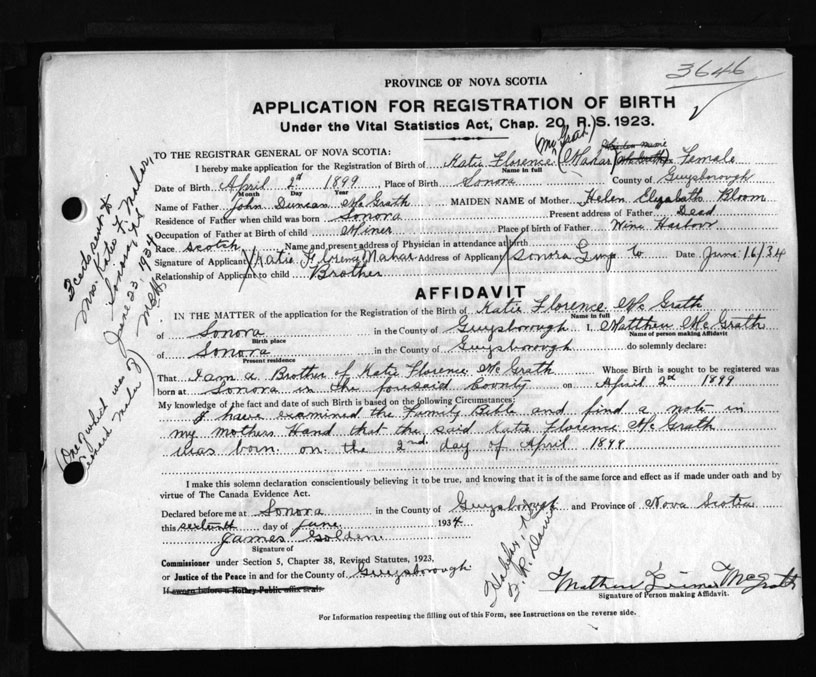 3646
PROVINCE OF NOVA SCOTIA
APPLICATION FOR REGISTRATION OF BIRTH
Under the Vital Statistics Act, Chap. 20, R. S. 1923.
(McGrath)
TO THE REGISTRAR GENERAL OF NOVA SCOTIA:
I hereby make application for the Registration of Birth of Katie Florence Mahar Female
Name in full
Date of Birth April 2nd 1899 Place of Birth Sonora County of Guysborough
Month Day Year
Name of Father John Duncan McGrath MAIDEN NAME of Mother Helen Elizabeth Bloom
Residence of Father when child was born Sonora Present address of Father Dead
Occupation of Father at Birth of child Miner Place of birth of Father Wine Harbour
Race Scotch Name and present address of Physician in attendance at birth
Signature of Applicant Katie Florence Mahar Address of Applicant Sonora Guys Co Date June 16/34
Relationship of Applicant to child Brother
AFFIDAVIT
IN THE MATTER of the application for the Registration of Birth of Katie Florence McGrath
Name in full
of Sonora in the County of Guysborough I, Matthew McGrath
Birth place Name of person making Affidavit
of Sonora in the County of Guysborough do solemnly declare:
Present residence
That I am a Brother of Katie Florence McGrath Whose Birth is sought to be registered was
born at Sonora in the foresaid County on April 2nd 1899
My knowledge of the fact and date of such Birth is based on the following Circumstances:
I have examined the Family Bible and find a note in
my mothers Hand that the said Katie Florence McGrath
was born on the 2nd day of April 1899
I make this solemn declaration conscientiously believing it to be true, and knowing that it is of the same force and effect as if made under oath and by
virtue of The Canada Evidence Act.
Declared before me at Sonora in the County of Guysborough and Province of Nova Scotia
this day of June 1934
James Golden
Signature of
Commissioner under Section 5, Chapter 38, Revised Statutes, 1923,
or Justice of the Peace in and for the County of Guysborough
If sworn before a Notary Public affix seal.
Signature of Person making Affidavit.
For Information respecting the filling out of this Form, see Instructions on the reverse side.
Mrs. Katie F. Mahar,
Sonora, NS
June 23, 1934